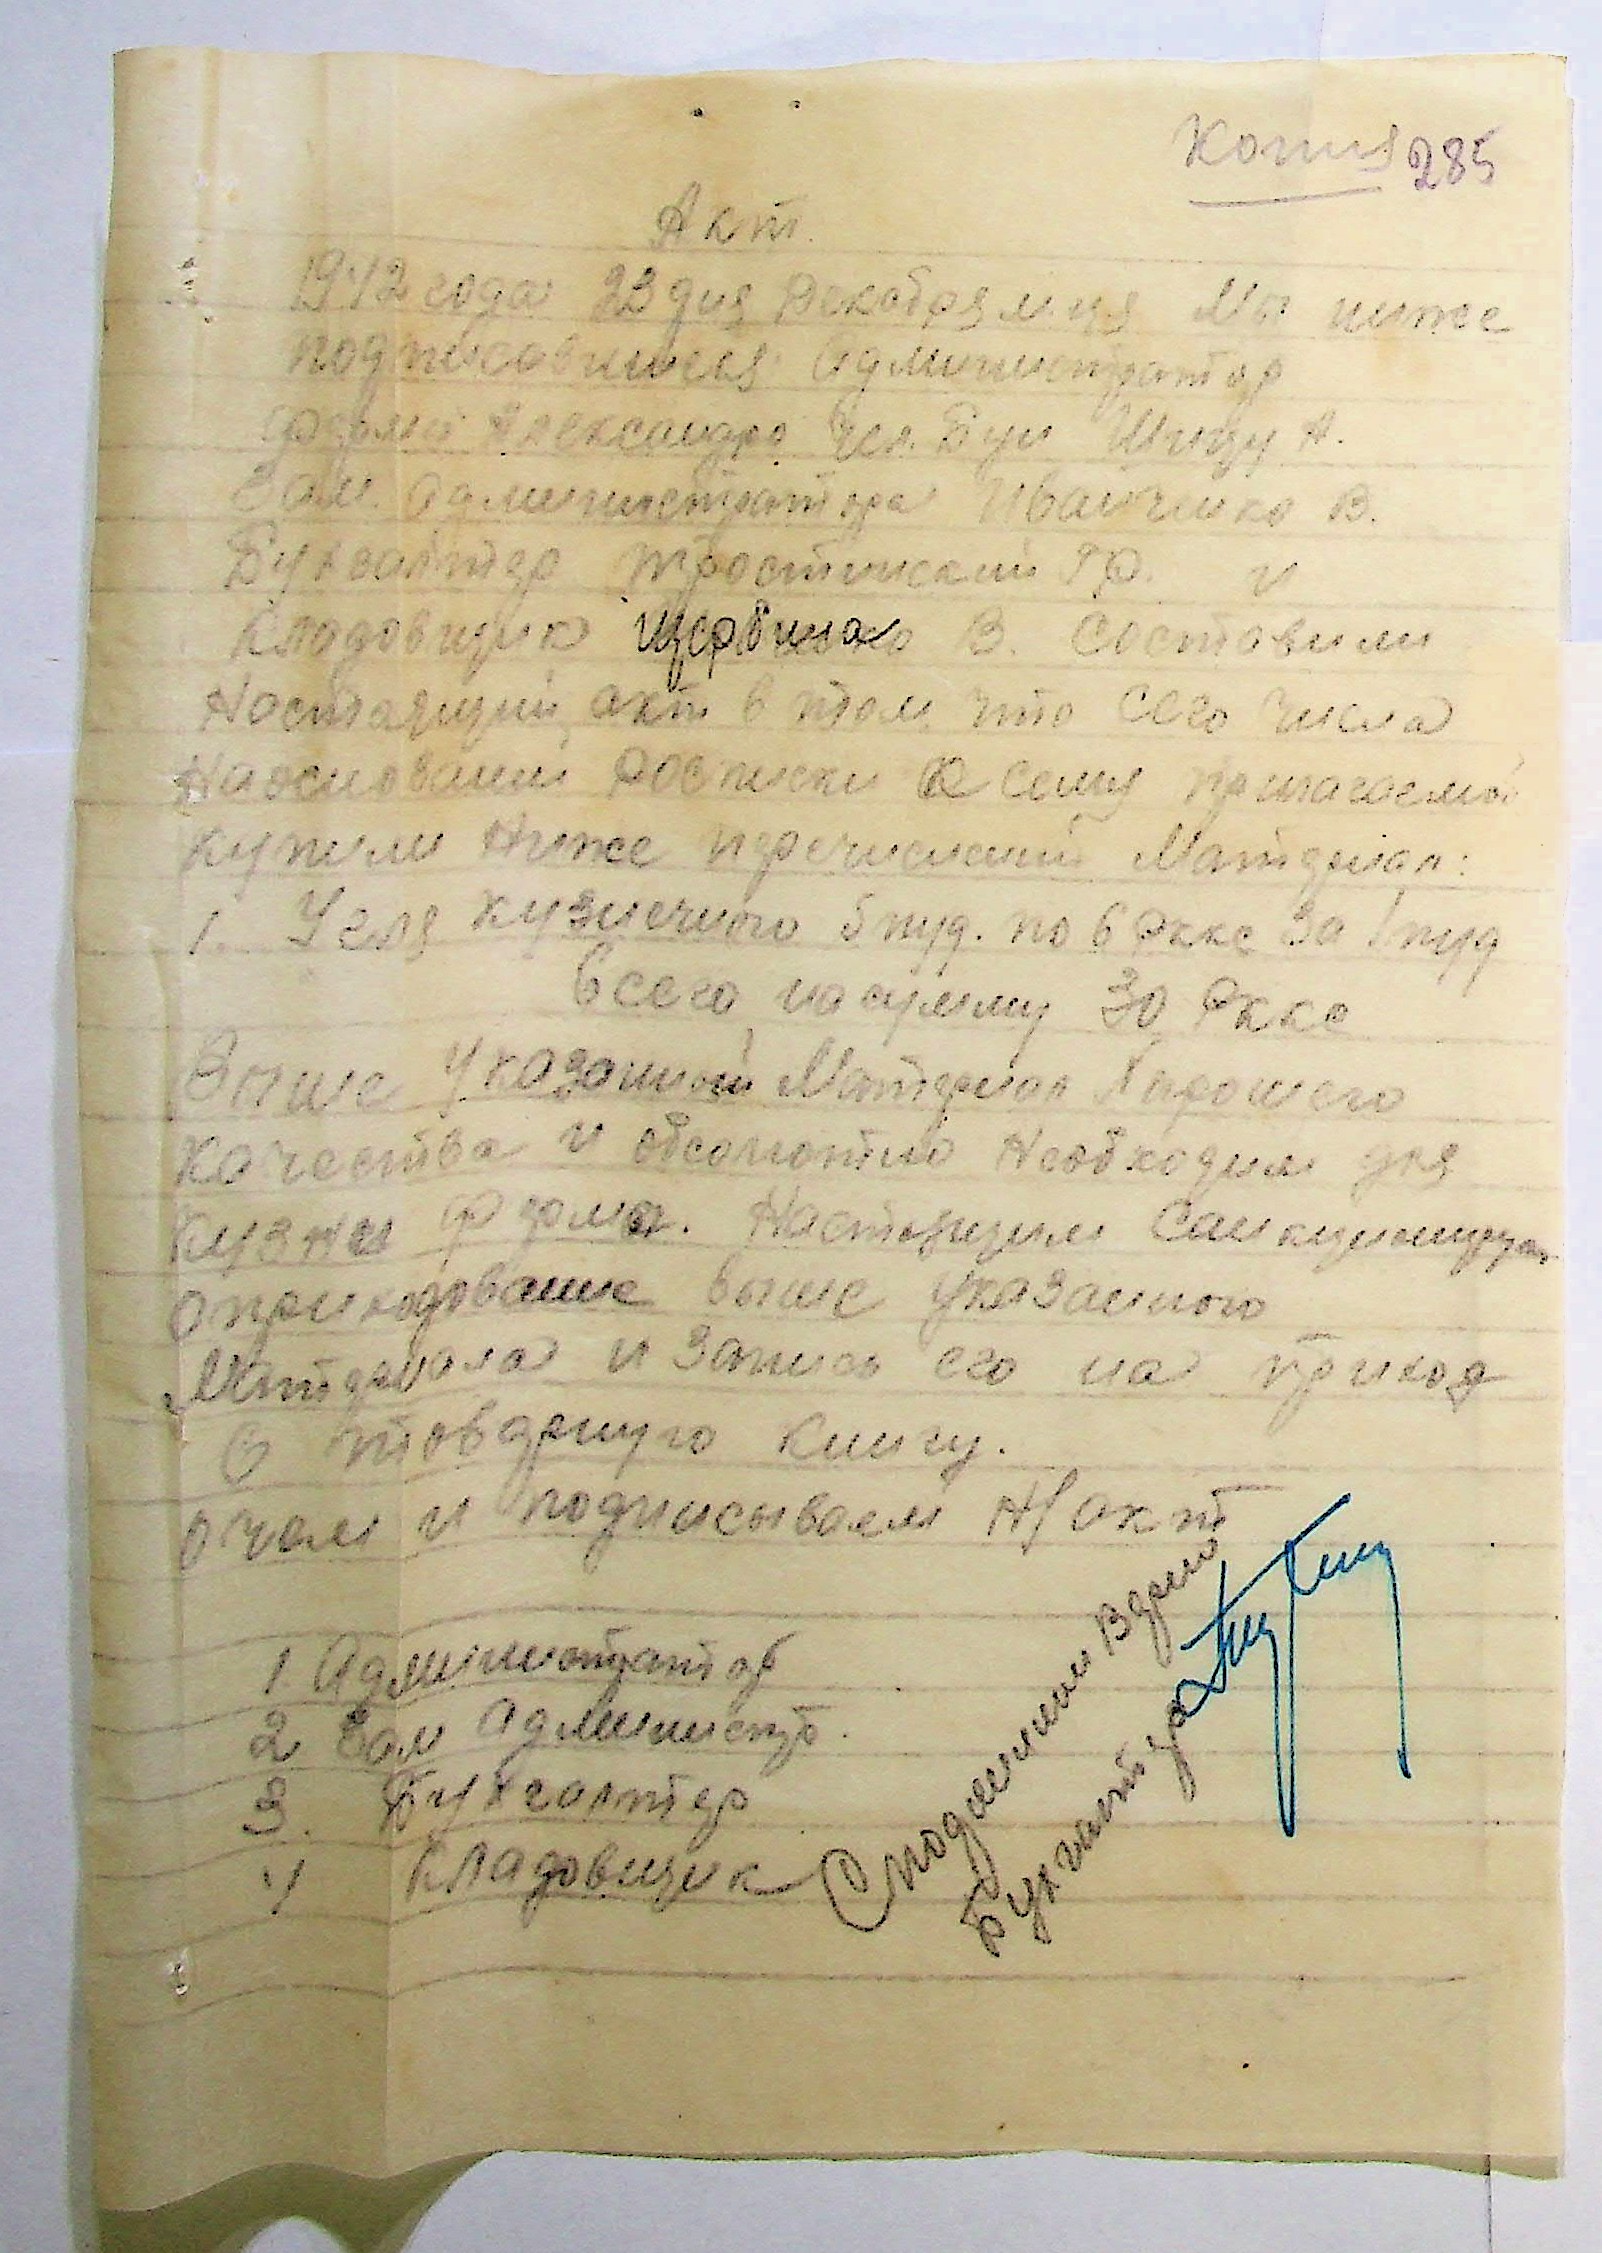 Копия 285
Акт.
1942 года 23 дня Декабря м-ця Мы ниже
подписавшиеся Администратор
Фермы Александро Шицу А.
Зам. Администратора Иванченко В.
Бухгалтер Тростинский и
Кладовщик Щербина В. Составили
Настоящий акт в том, что сего числа
На основании Росписки к сему прилагаемой
купили Ниже перечисленый Матерьял:
1. Угля кузнечного 5 пуд. по 6 Рккс за 1 пуд
Всего на сумму 30 Рккс
Выше Указанный Матерьял Хорошего
качества и обсолютно Необходим для
Кузни Ферма. Настоящим Санкционируем
оприходование выше указанного
Матерьяла и Запись его на приход
в товерную книгу.
О чем и подписываем Н/акт
1 Администратор
2 Зам Администр.
3. Бухгалтер
4 Кладовщик
С подлинним Верно
Бухгалтер